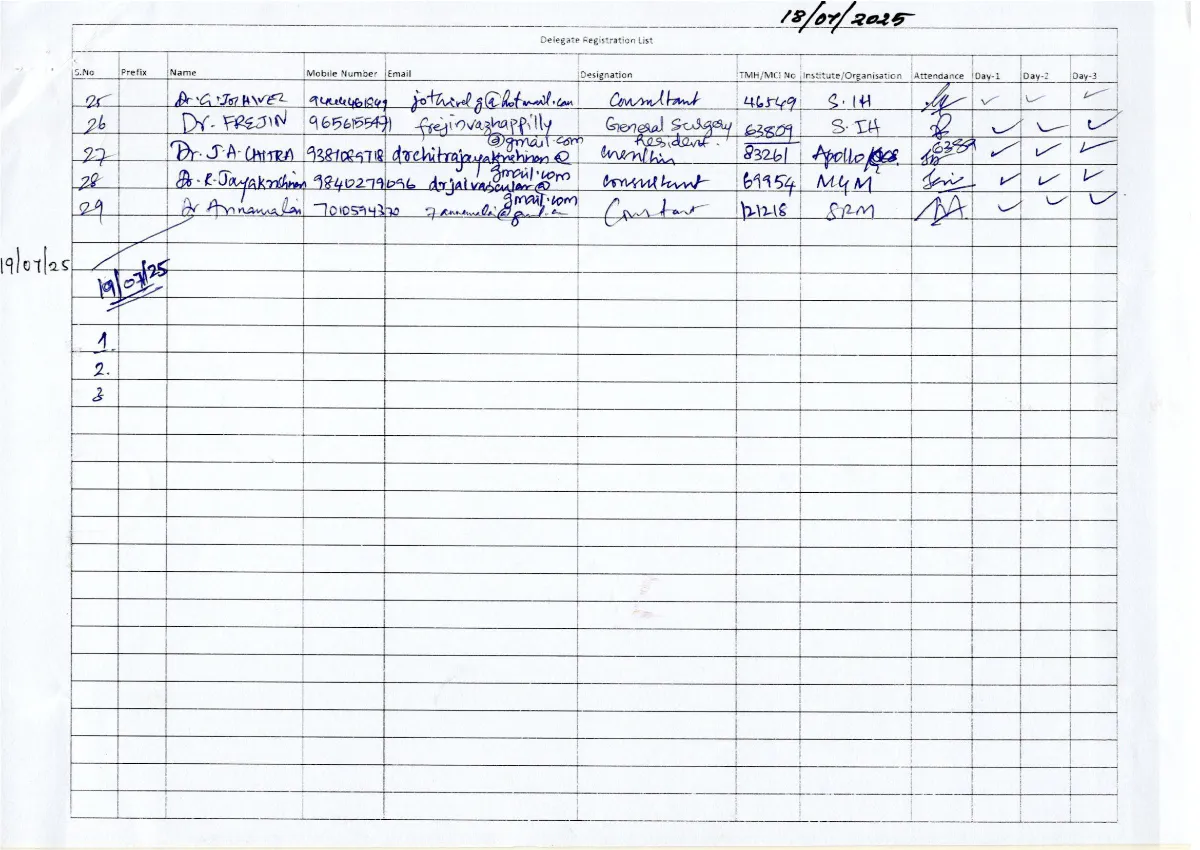 18/07/2025
Delegate Registration List
S.No Prefix Name Mobile Number Email Designation TMH/MCI No Institute/Organisation Attendance Day-1 Day-2 Day-3
25 Dr. G. JOTHIVEL jothivel g@hotmail.com Consultant 46549 S. IH ✓ ✓ ✓
26 Dr. FREJIN 9656155471 frejinvazhappilly @gmail.com General Surgery Resident. 63809 S. IH ✓ ✓ ✓
27 Dr. J. A. CHITRA 9381089718 drchitrajayakrishnan@ gmail.com 83261 Apollo 6389 ✓ ✓ ✓
28 Dr. R. Jayakrishnan 9840279096 drjaivascular@ gmail.com consultant 69954 MGM ✓ ✓ ✓
29 Dr Annamalai 7010594370 121218 SRM ✓ ✓ ✓
19/07/25
19/07/25
1.
2.
3